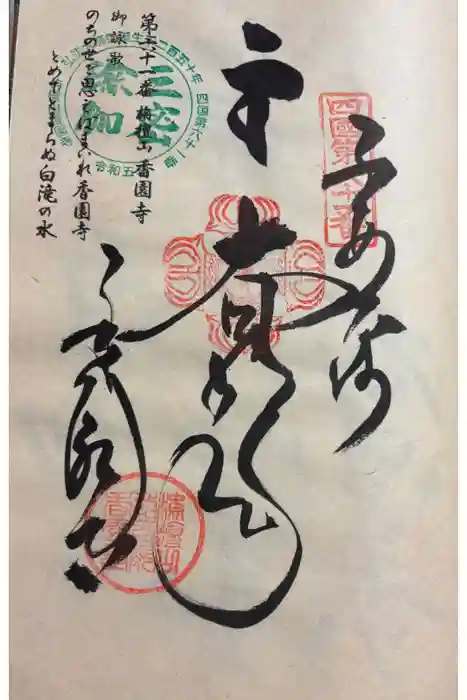 四國第六十一番
奉納
大日如来
香園寺
第六十一番 栴檀山 香園寺
御詠歌
のちの世を思はばまいれ香園寺
とめてとまらぬ白滝の水
三密
瑜伽
四国第六十一番
令和五